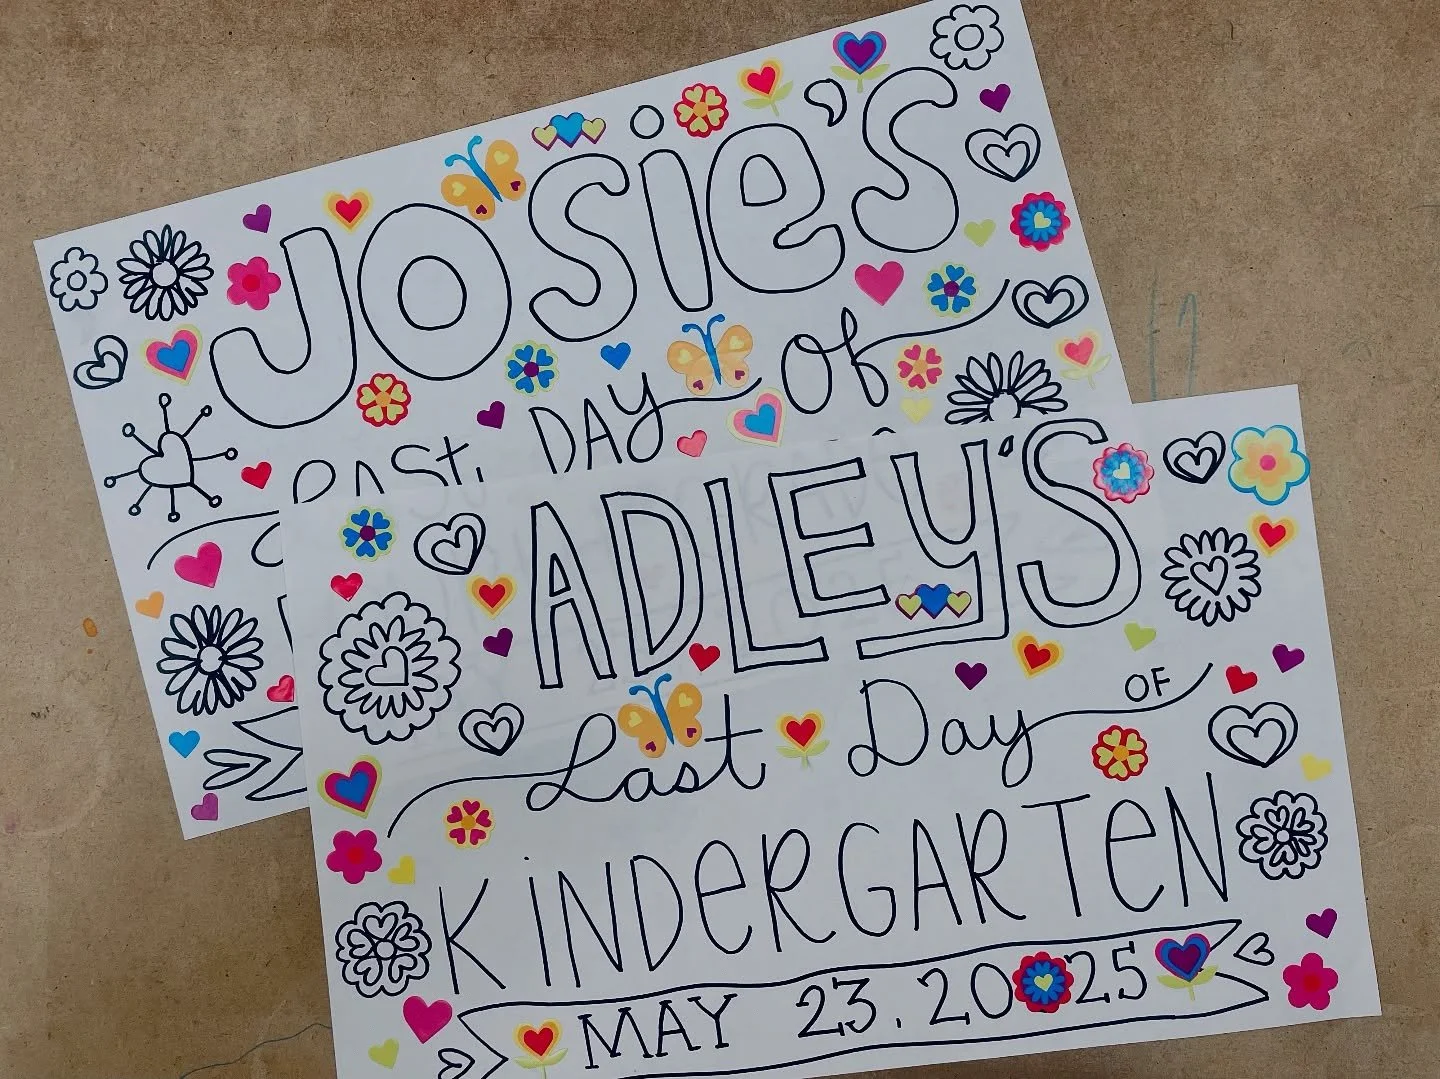 JOSie'S
LAST DAY of
ADLEY'S
Last Day OF
KiNDeRGARTeN
MAY 23, 2025